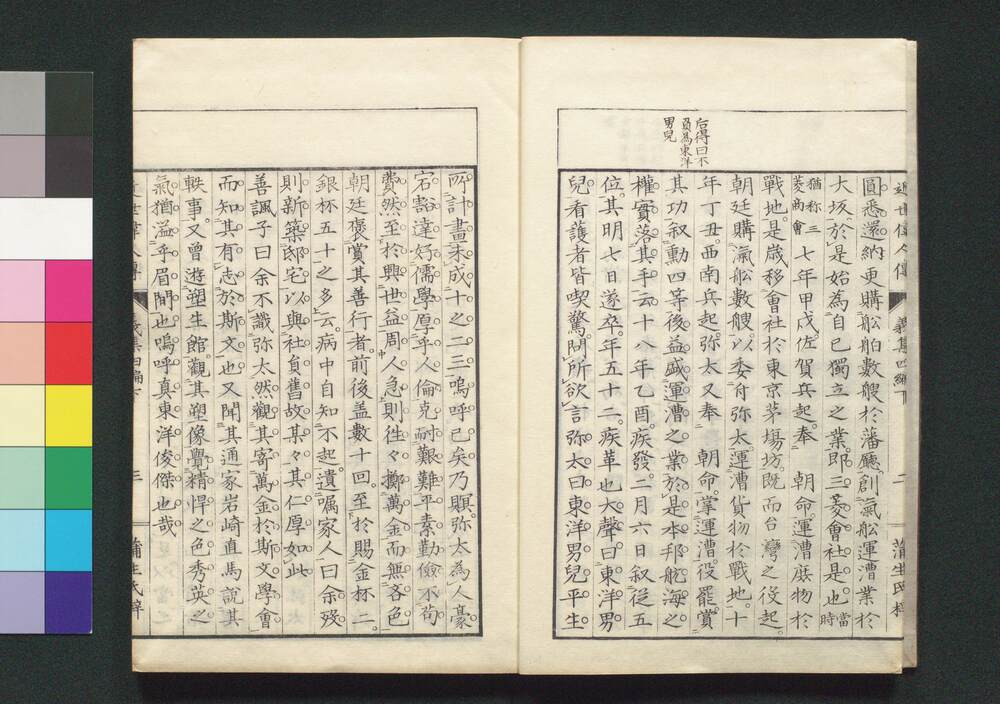 近世偉人傳 義集四編下 二 蒲生氏梓
后得曰不
負為東洋
男兒
圓悉還納更購舩舶數艘於藩廳創氣舩運漕業於
大坂於是始為自己獨立之業即三菱會社是也當時
猶称三菱商會七年甲戌佐賀兵起奉 朝命運漕庶物於
戰地是歳移會社於東京茅塲坊既而台灣之役起
朝廷購氣舩數艘以委付弥太運漕貨物於戰地十
年丁丑西南兵起弥太又奉 朝命掌運漕役罷賞
其功叙勳四等後益盛運漕之業於是本邦航海之
權實落其手云十八年乙酉疾發二月六日叙從五
位其明七日遂卒年五十二疾革也大聲曰東洋男
兒看護者皆喫驚問所欲言弥太曰東洋男兒平生
所計畫未成十之二三嗚呼已矣乃瞑弥太為人豪
宕豁達好儒學厚乎人倫克耐艱難平素勤儉不苟
費然至於興世益周人急則徃々擲萬金而無吝色
朝廷褒賞其善行者前後盖數十回至於賜金杯二
銀杯五十之多云病中自知不起遺嘱家人曰余殁
則新築邸宅以與社負舊故某々其仁厚如此
善諷子曰余不識弥太然觀其寄萬金於斯文學會
而知其有志於斯文也又聞其通家岩崎直馬説其
軼事又曾遊塑生館觀其塑像覺精悍之色秀英之
氣猶溢乎眉間也嗚呼真東洋俊傑也哉
近世偉人傳 義集四編下 三 蒲生氏梓